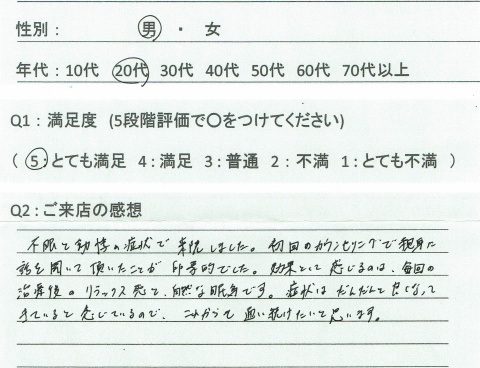 性別： 男 ・ 女
年代：10代 20代 30代 40代 50代 60代 70代以上
Q1：満足度 (5段階評価で〇をつけてください)
( 5：とても満足 4：満足 3：普通 2：不満 1：とても不満 )
Q2：ご来店の感想
不眠と動悸の症状で来院しました。初回のカウンセリングで親身に
話を聞いて頂いたことが印象的でした。効果として感じるのは、毎回の
治療後のリラックス感と、自然な眠気です。症状はだんだんと良くなって
きていると感じているので、これからも通い続けたいと思います。